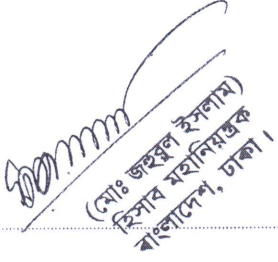 (মোঃ জহুরুল ইসলাম)
হিসাব মহানিয়ন্ত্রক
বাংলাদেশ, ঢাকা।